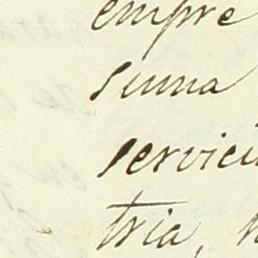 empre
suma
servici
tria,